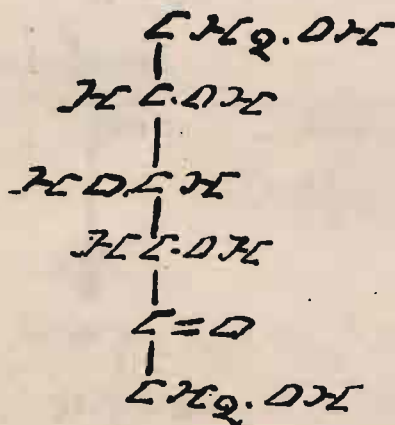 CH₂.OH
HC.OH
HO.CH
HC.OH
C=O
CH₂.OH